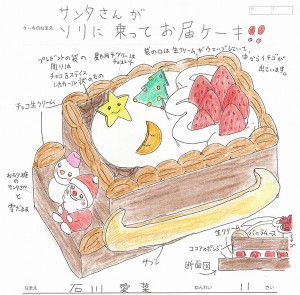 ケーキのなまえ
サンタさんが
ソリに乗ってお届ケーキ!!
プレゼントの袋の
周りは
チョコをスライス
したカール状のもの
星や月やツリーは
チョコレート
袋の口は生クリームがウェーブしていて、
中からイチゴが
出ています。
チョコ生クリーム
おさとう
のサンタさん
と
雪だるま
サブレ
生クリーム
ココアスポンジ
断面図
なまえ 石川 愛菜 ねんれい 11 さい